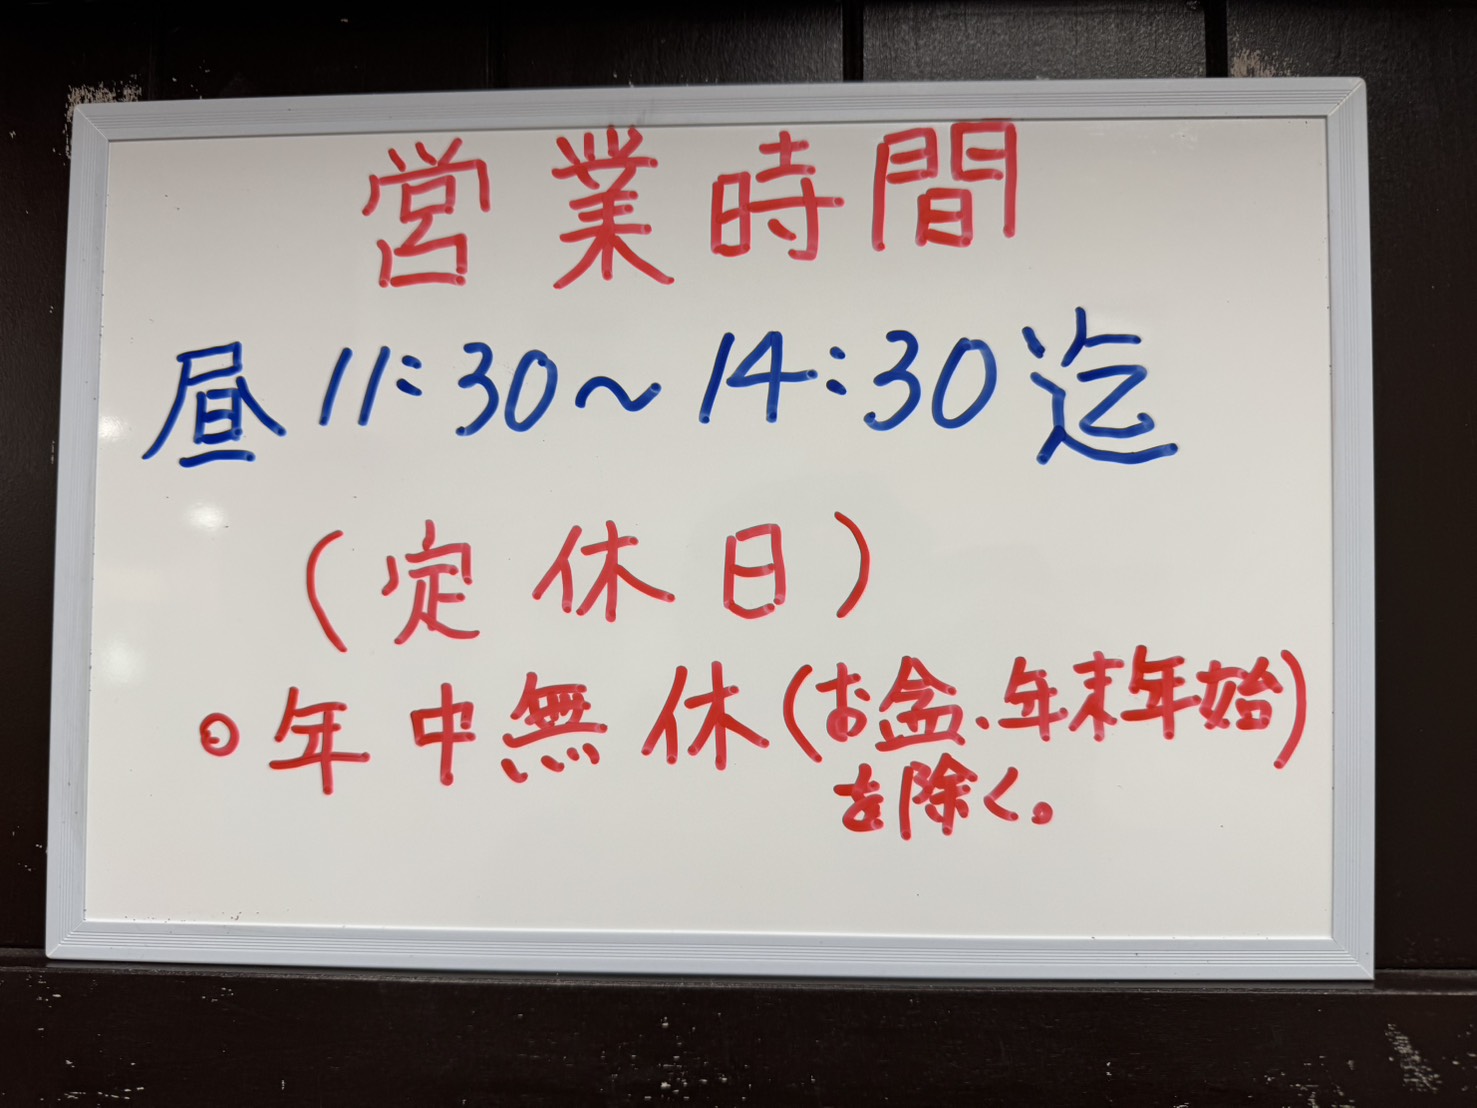 営業時間
昼 11:30〜14:30迄
(定休日)
○年中無休(お盆、年末年始)
を除く。